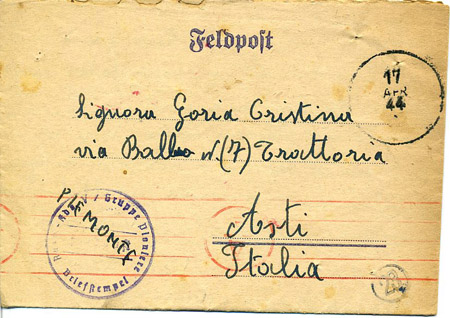 Feldpost
17
APR
44
Signora Goria Cristina
via Balbo N (7) Trattoria
Asti
Italia
PIEMONTE
Gruppe Pioniere
Briefstempel